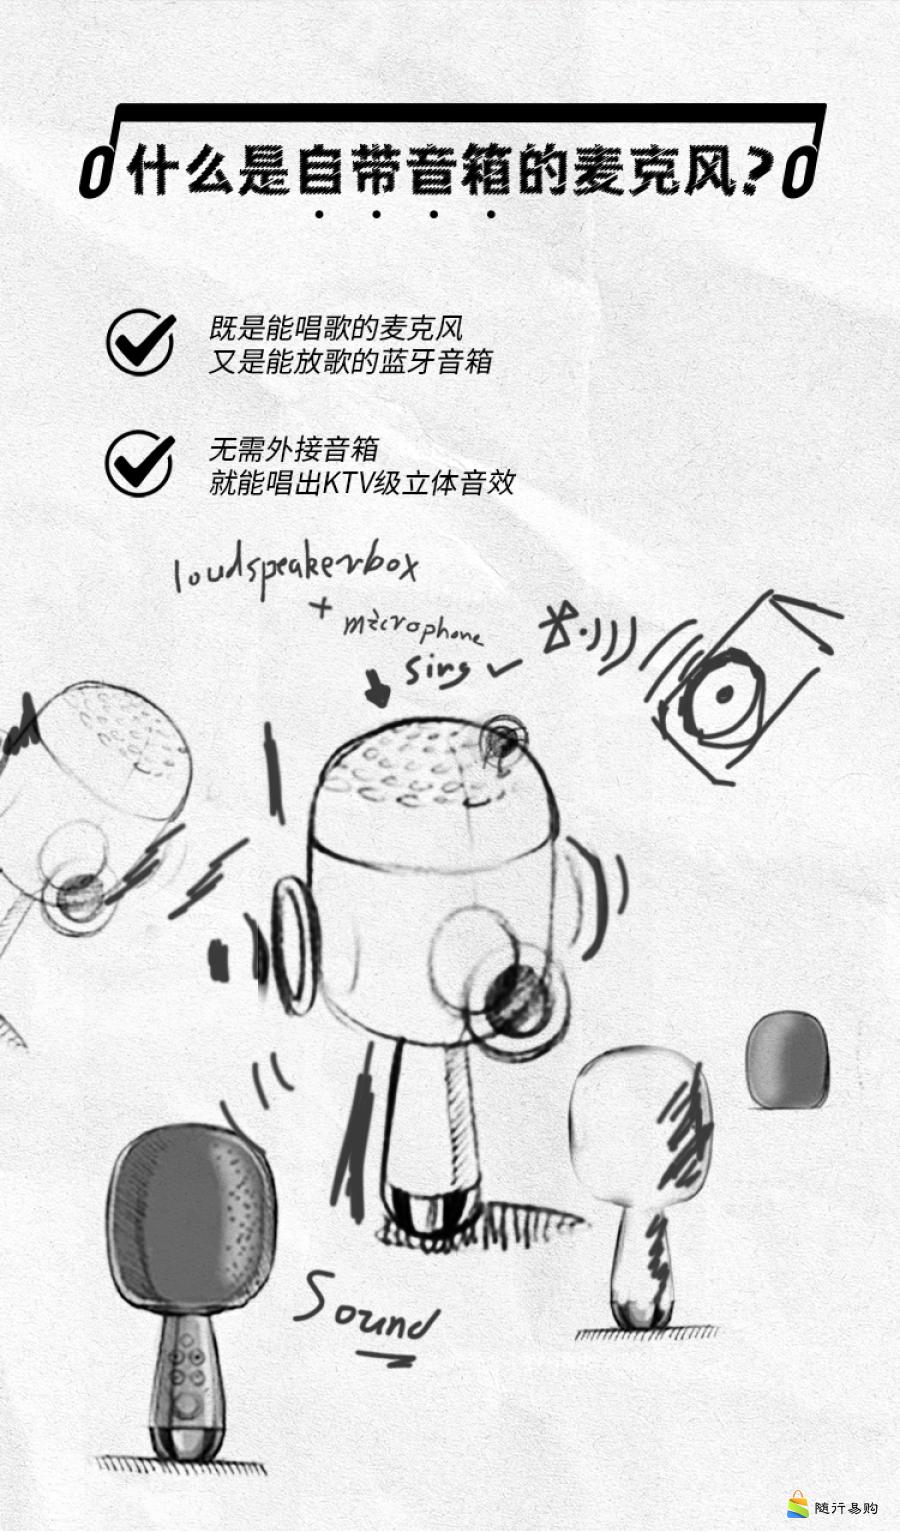 什么是自带音箱的麦克风?
既是能唱歌的麦克风
又是能放歌的蓝牙音箱
无需外接音箱
就能唱出KTV级立体音效
loudspeakerbox
+ microphone
sing ✓
Sound
随行易购